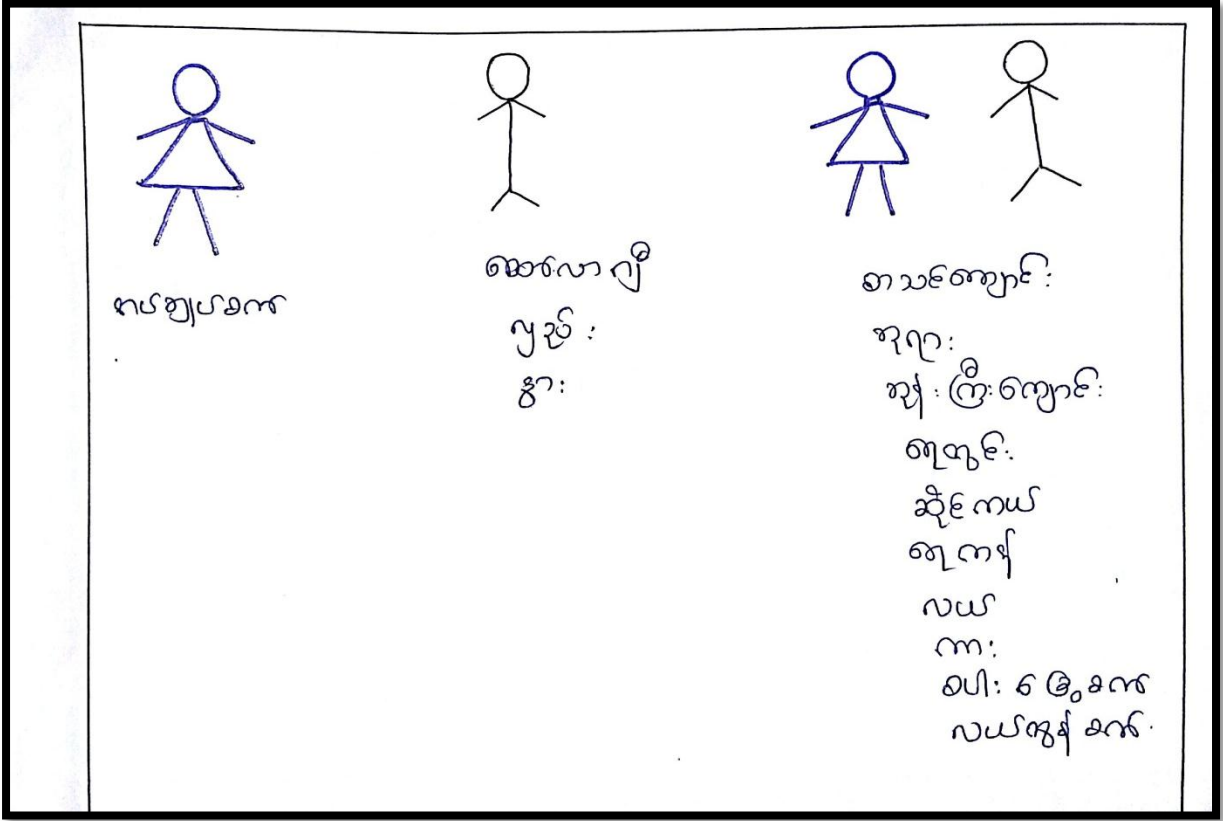 အပ်ချုပ်စက်
ထော်လာဂျီ
လှည်း
နွား
စာသင်ကျောင်း
ဘုရား
ဘုန်းကြီးကျောင်း
ရေတွင်း
ဆိုင်ကယ်
ရေကန်
လယ်
ကား
စပါးခြွေစက်
လယ်ထွန်စက်